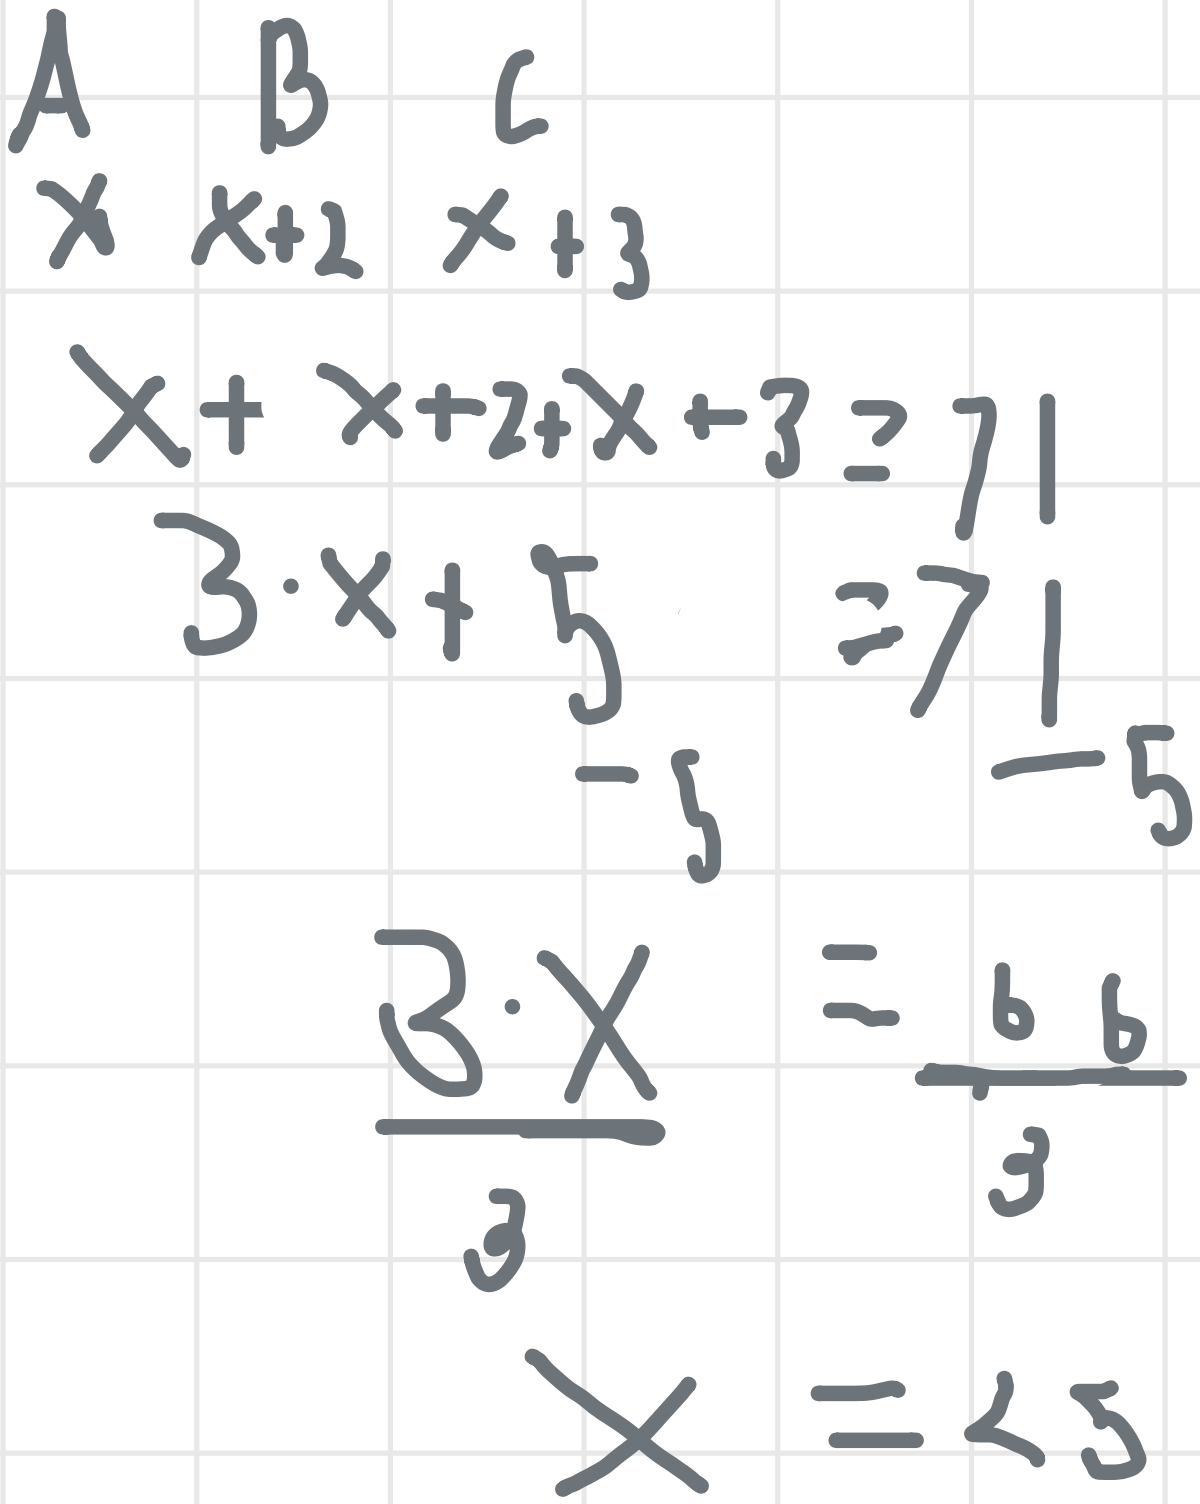 A B C
x x+2 x+3
x + x+2+x+3 = 71
3·x + 5 = 71
- 5 - 5
3·x = 66
3 3
x = <5